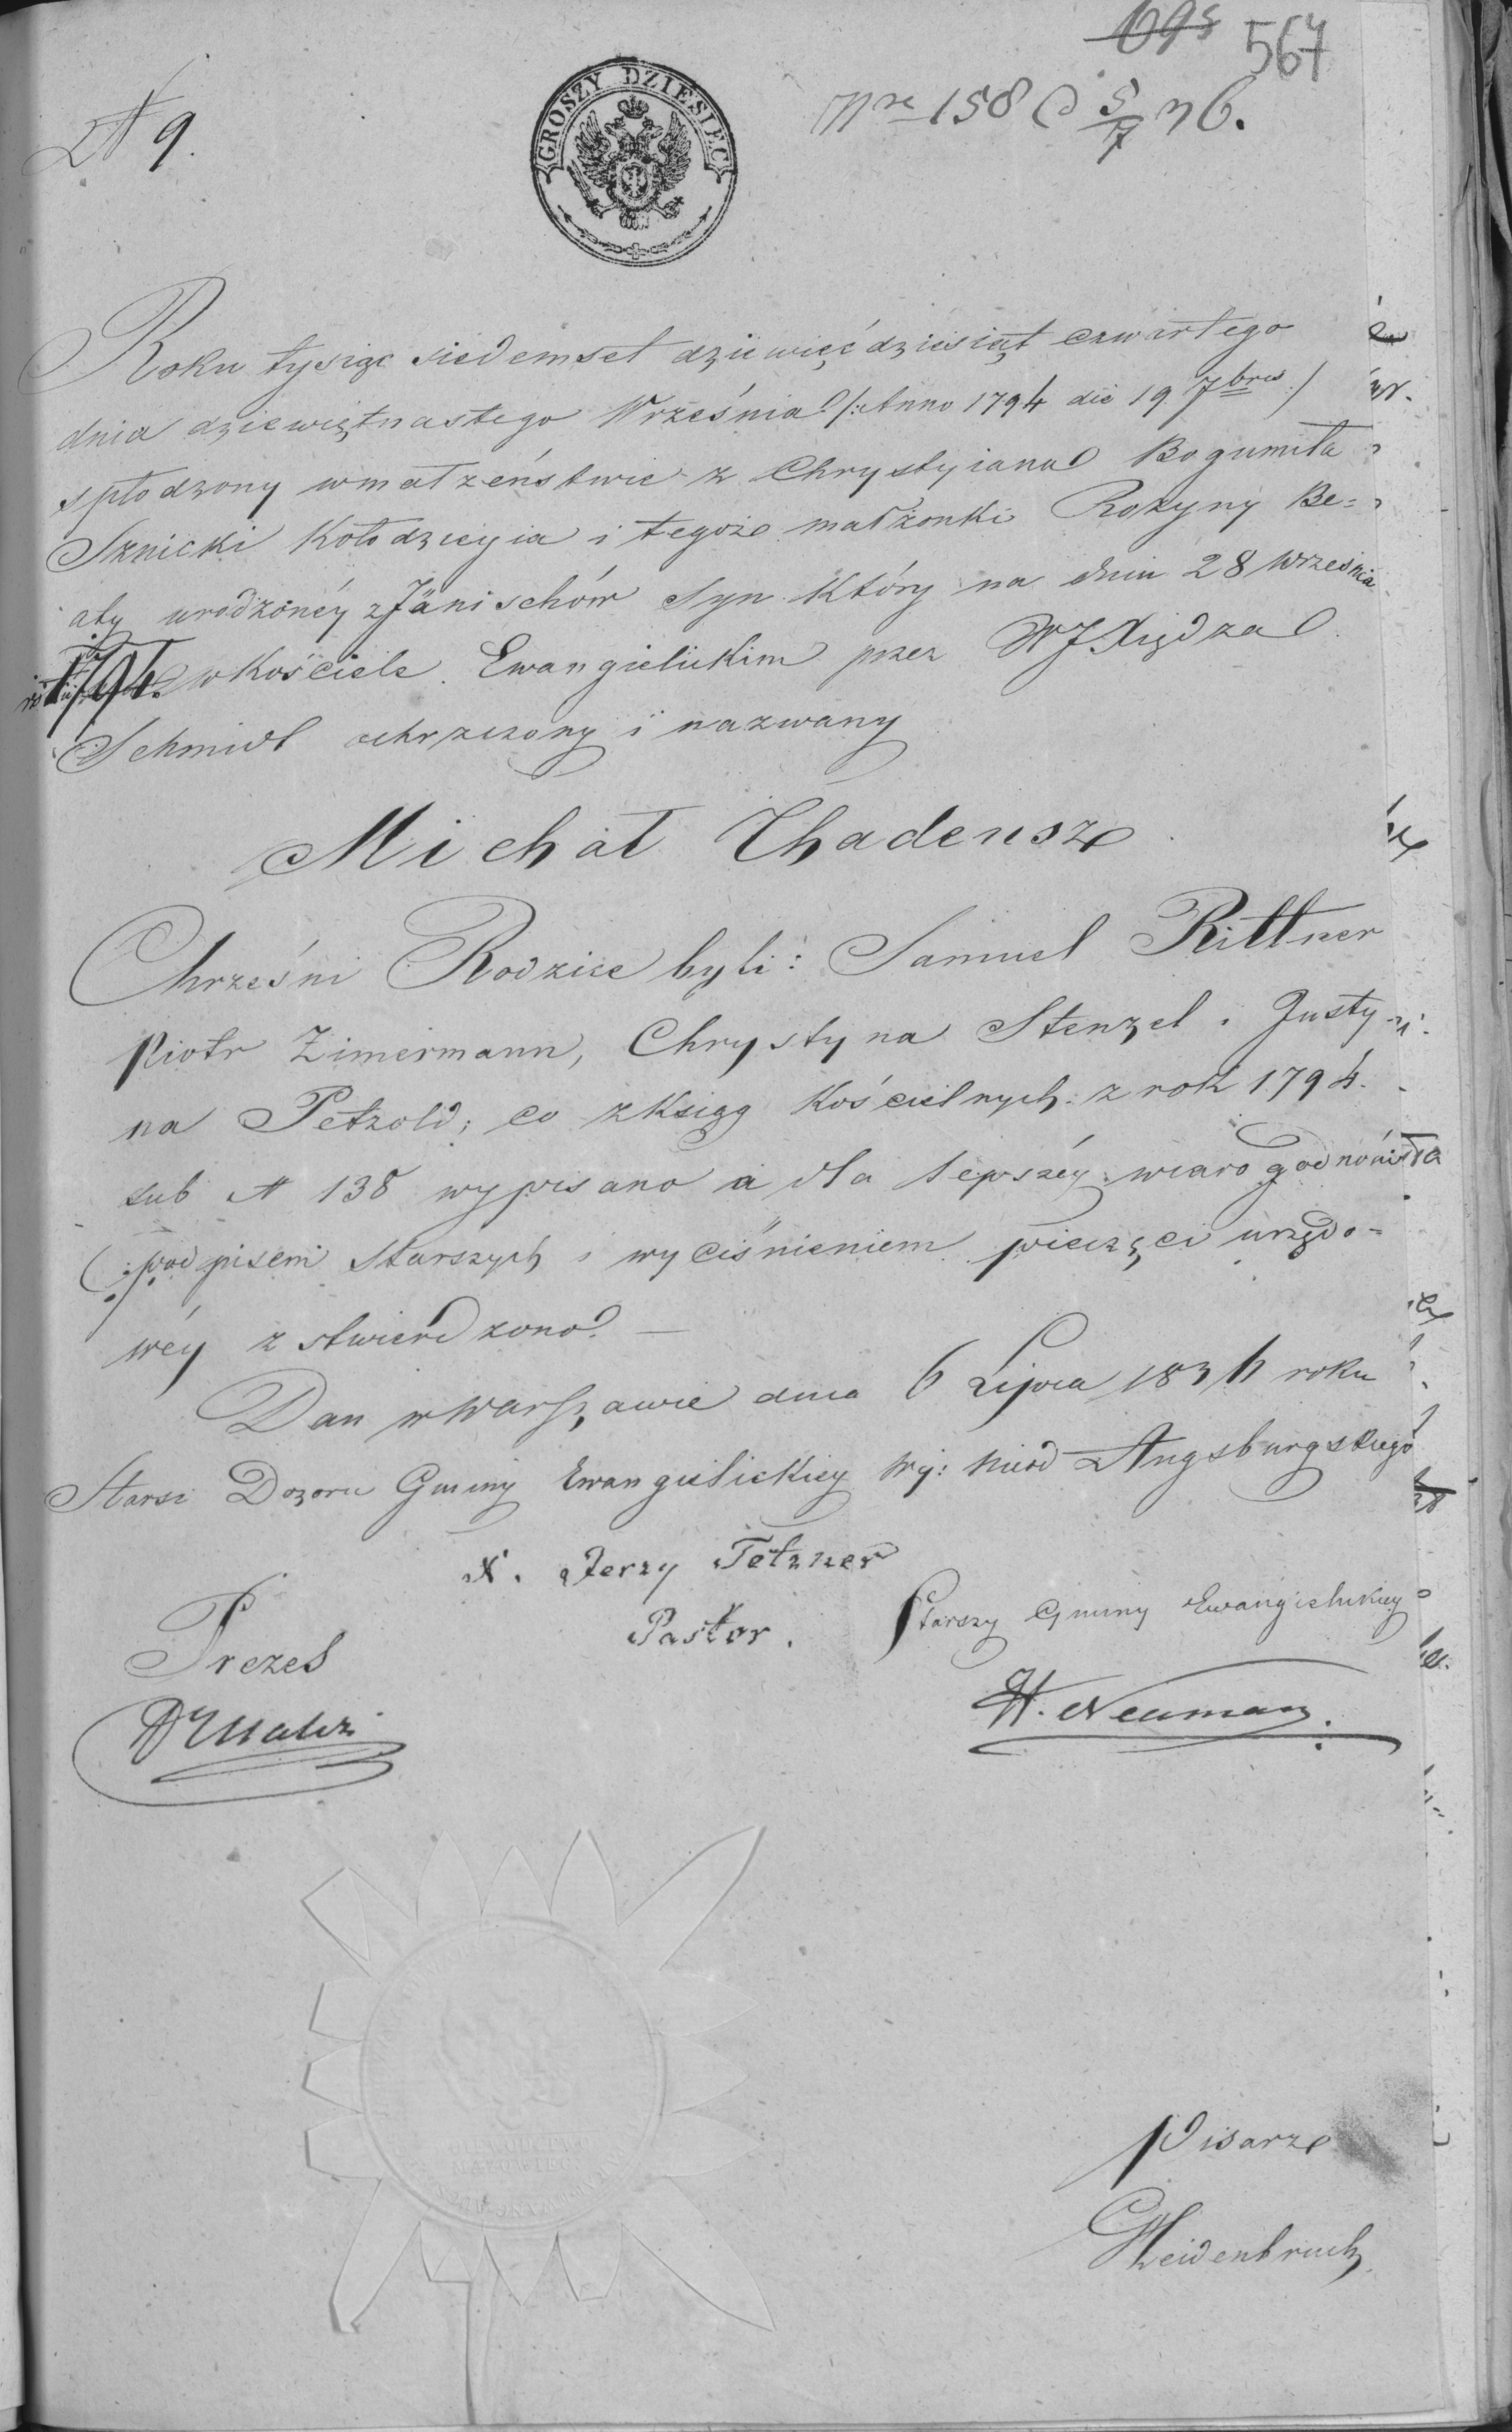 695 567
Nro 158 O 5/7 36.
N 9.
GROSZY DZIESIĘĆ
Roku tysiąc siedemset dziewięćdziesiąt czwartego
dnia dziewiętnastego Września /: Anno 1794 die 19 7bris :/
spłodzony w małżeństwie z Chrystyiana Bogumiła
Sznicki Kołodzieyia i tegoże małżonki Rozyny Be=
aty urodzonéy z Jänischów Syn który na dniu 28 Września
1794 w kościele Ewangielickim przez W J Xiędza
Schmidt ochrzczony i nazwany
Michał Thadeusz
Chrześni Rodzice byli: Samuel Rittner
Piotr Zimermann, Chrystyna Stenzel i Justy-
na Petzold; co z Ksiąg Kościelnych z rok 1794
sub N 138 wypisano a dla lepszéy wiarogodności
podpisem Starszych i wyciśnieniem pieczęci urzędo-
wéy zstwierdzono. —
Dan w Warszawie dnia 6 Lipca 1836 roku
Starsi Dozoru Gminy Ewangielickiey Wy: Nieod Augsburgskiego
X. Jerzy Tetzner
Pastor.
Prezes
Starszy Gminy Ewangielickiey
W. Neuman
Pisarz
Heidenbruch